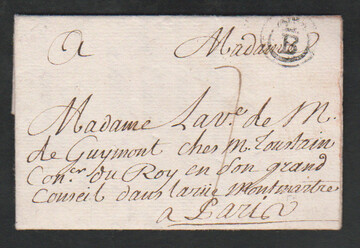 A Madame
B
Madame La ve. de M.
de Guymont chés M. Toustain
Con.er du Roy en son grand
Conseil dans la rüe Montmartre
a Paris